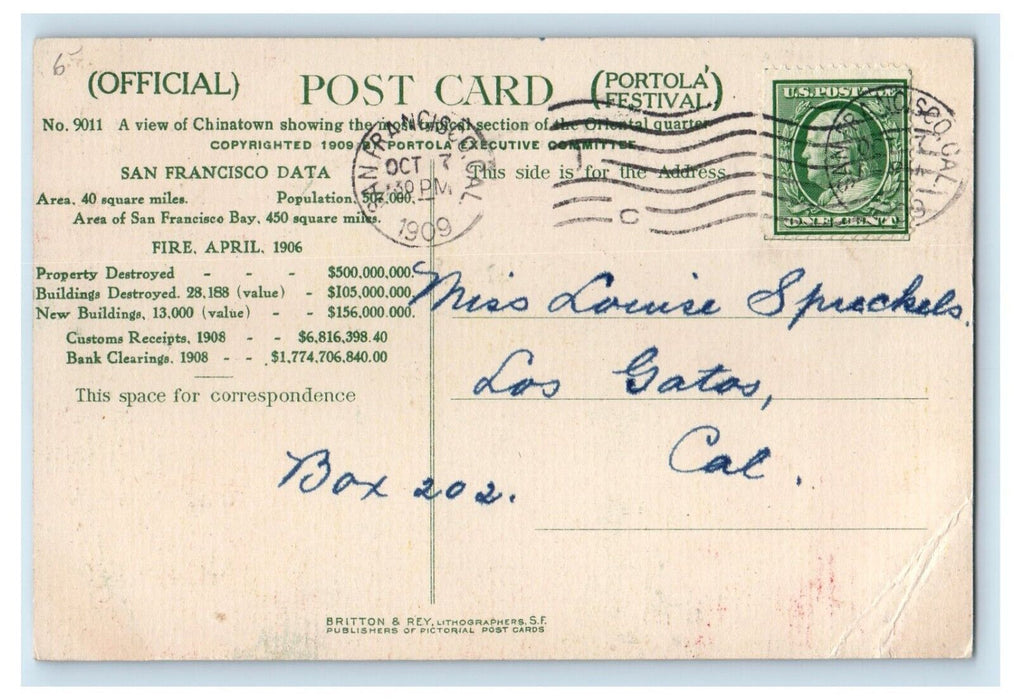 6
(OFFICIAL) POST CARD (PORTOLA FESTIVAL.)
No. 9011 A view of Chinatown showing the most typical section of the Oriental quarter
COPYRIGHTED 1909 BY PORTOLA EXECUTIVE COMMITTEE.
SAN FRANCISCO DATA
This side is for the Address
Area, 40 square miles. Population,
Area of San Francisco Bay, 450 square miles.
FIRE, APRIL, 1906
Property Destroyed - - - $500,000,000.
Buildings Destroyed. 28,188 (value) - $105,000,000.
New Buildings, 13,000 (value) - $156,000,000.
Customs Receipts, 1908 - - $6,816,398.40
Bank Clearings, 1908 - - $1,774,706,840.00
This space for correspondence
SAN FRANCISCO, CAL.
OCT 7
30 PM
1909
C
U.S. POSTAGE
ONE CENT
SAN FRANCISCO, CAL.
Miss Louise Spreckels.
Los Gatos,
Cal.
Box 202.
BRITTON & REY, LITHOGRAPHERS, S.F.
PUBLISHERS OF PICTORIAL POST CARDS